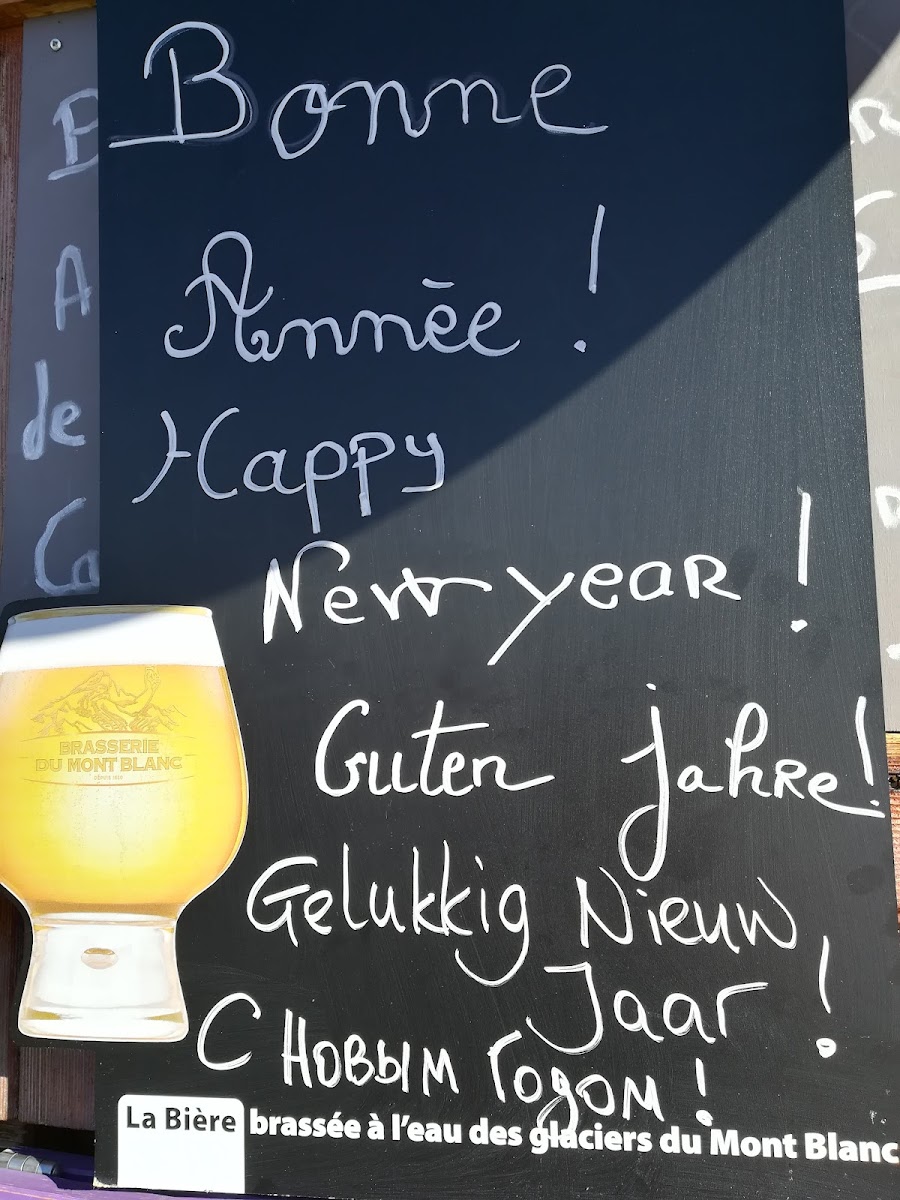 Bonne
Annèe !
Happy
New year !
Guten Jahre !
Gelukkig Nieuw
Jaar !
С Новым Годом !
BRASSERIE
DU MONT BLANC
La Bière brassée à l'eau des glaciers du Mont Blanc
de